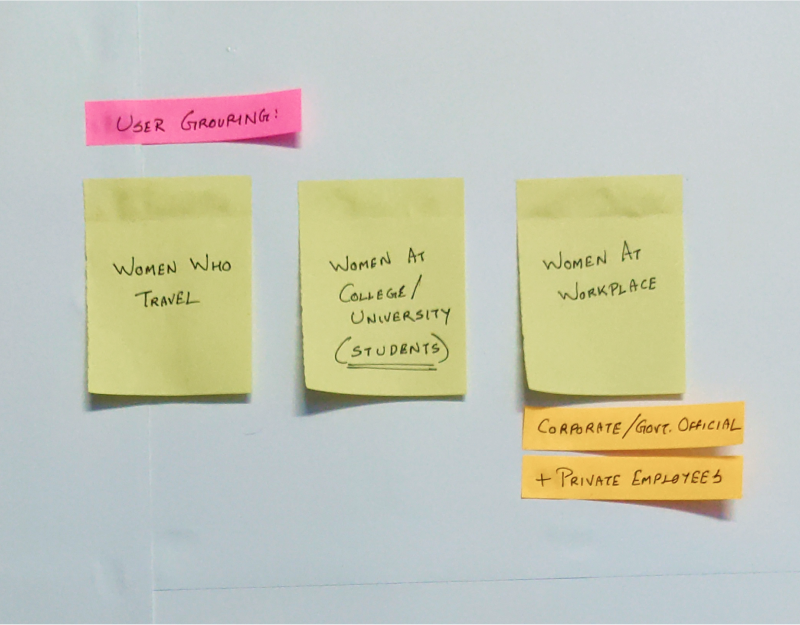 USER GROUPING:
WOMEN WHO
TRAVEL
WOMEN AT
COLLEGE/
UNIVERSITY
(STUDENTS)
WOMEN AT
WORKPLACE
CORPORATE/GOVT. OFFICIAL
+ PRIVATE EMPLOYEES